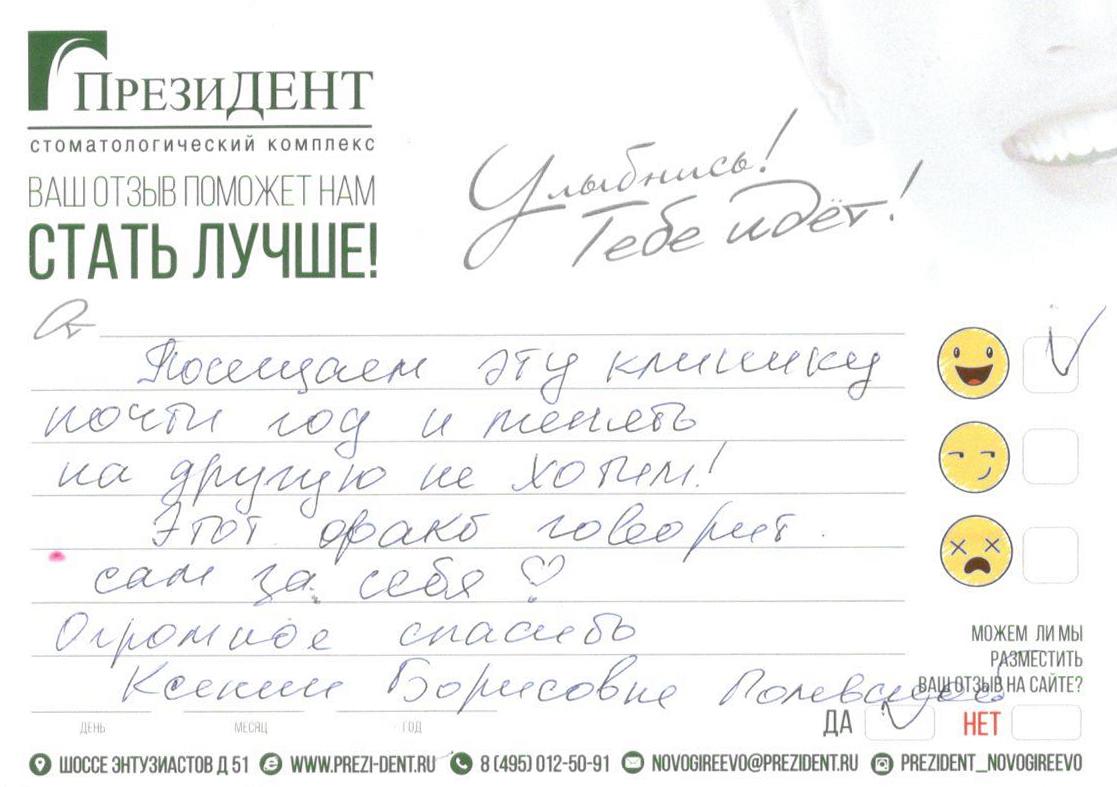 ПРЕЗИДЕНТ
СТОМАТОЛОГИЧЕСКИЙ КОМПЛЕКС
ВАШ ОТЗЫВ ПОМОЖЕТ НАМ
СТАТЬ ЛУЧШЕ!
Улыбнись!
Тебе идёт!
От
Посещаем эту клинику
почти год и менять
на другую не хотим!
Этот факт говорит
сам за себя ♡
Огромное спасибо
Ксении Борисовне
МОЖЕМ ЛИ МЫ
РАЗМЕСТИТЬ
ВАШ ОТЗЫВ НА САЙТЕ?
ДА НЕТ
ДЕНЬ МЕСЯЦ ГОД
ШОССЕ ЭНТУЗИАСТОВ Д 51 WWW.PREZI-DENT.RU 8 (495) 012-50-91 NOVOGIREEVO@PREZIDENT.RU PREZIDENT_NOVOGIREEVO